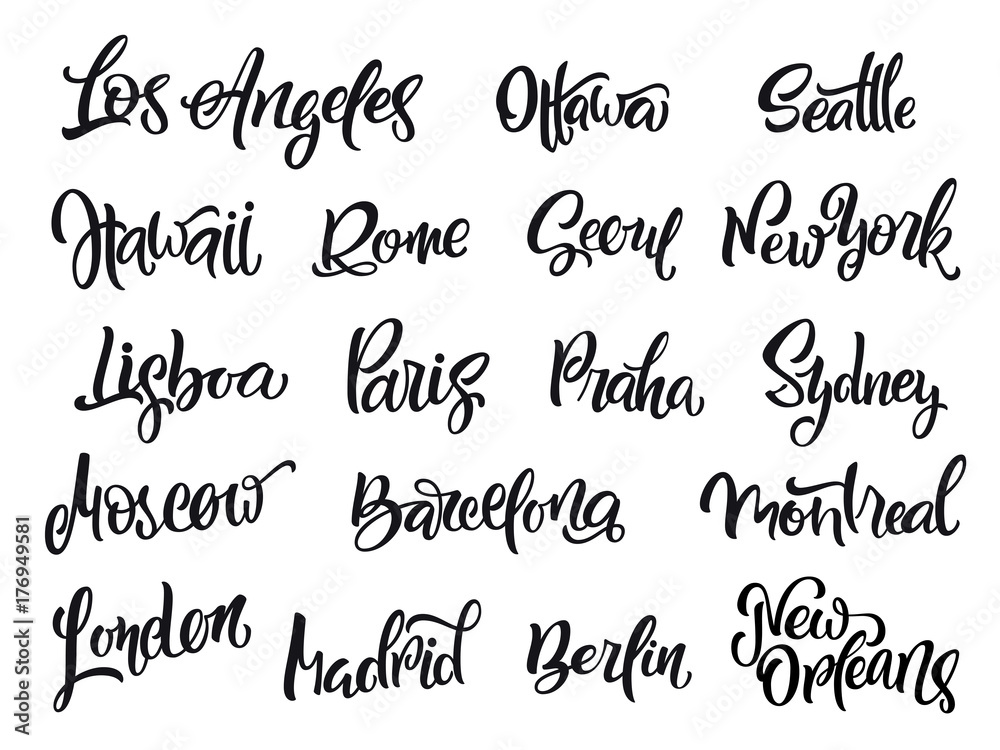 Los Angeles Ottawa Seattle
Hawaii Rome Seoul New York
Lisboa Paris Praha Sydney
Moscow Barcelona Montreal
London Madrid Berlin New
Orleans
Adobe Stock | #176949581